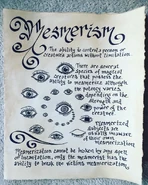 Mesmerism
The ability to control a person or
creatures actions without limitation.
There are several
species of magical
creatures that possess the
ability to mesmerise although
the potency varies
depending on the
strength and
power of the
creature
Mesmerized
subjects are
of their own
Mesmerization cannot be broken by any spell
or incantation, only the mesmerist has the
ability to break the victims mesmerization.